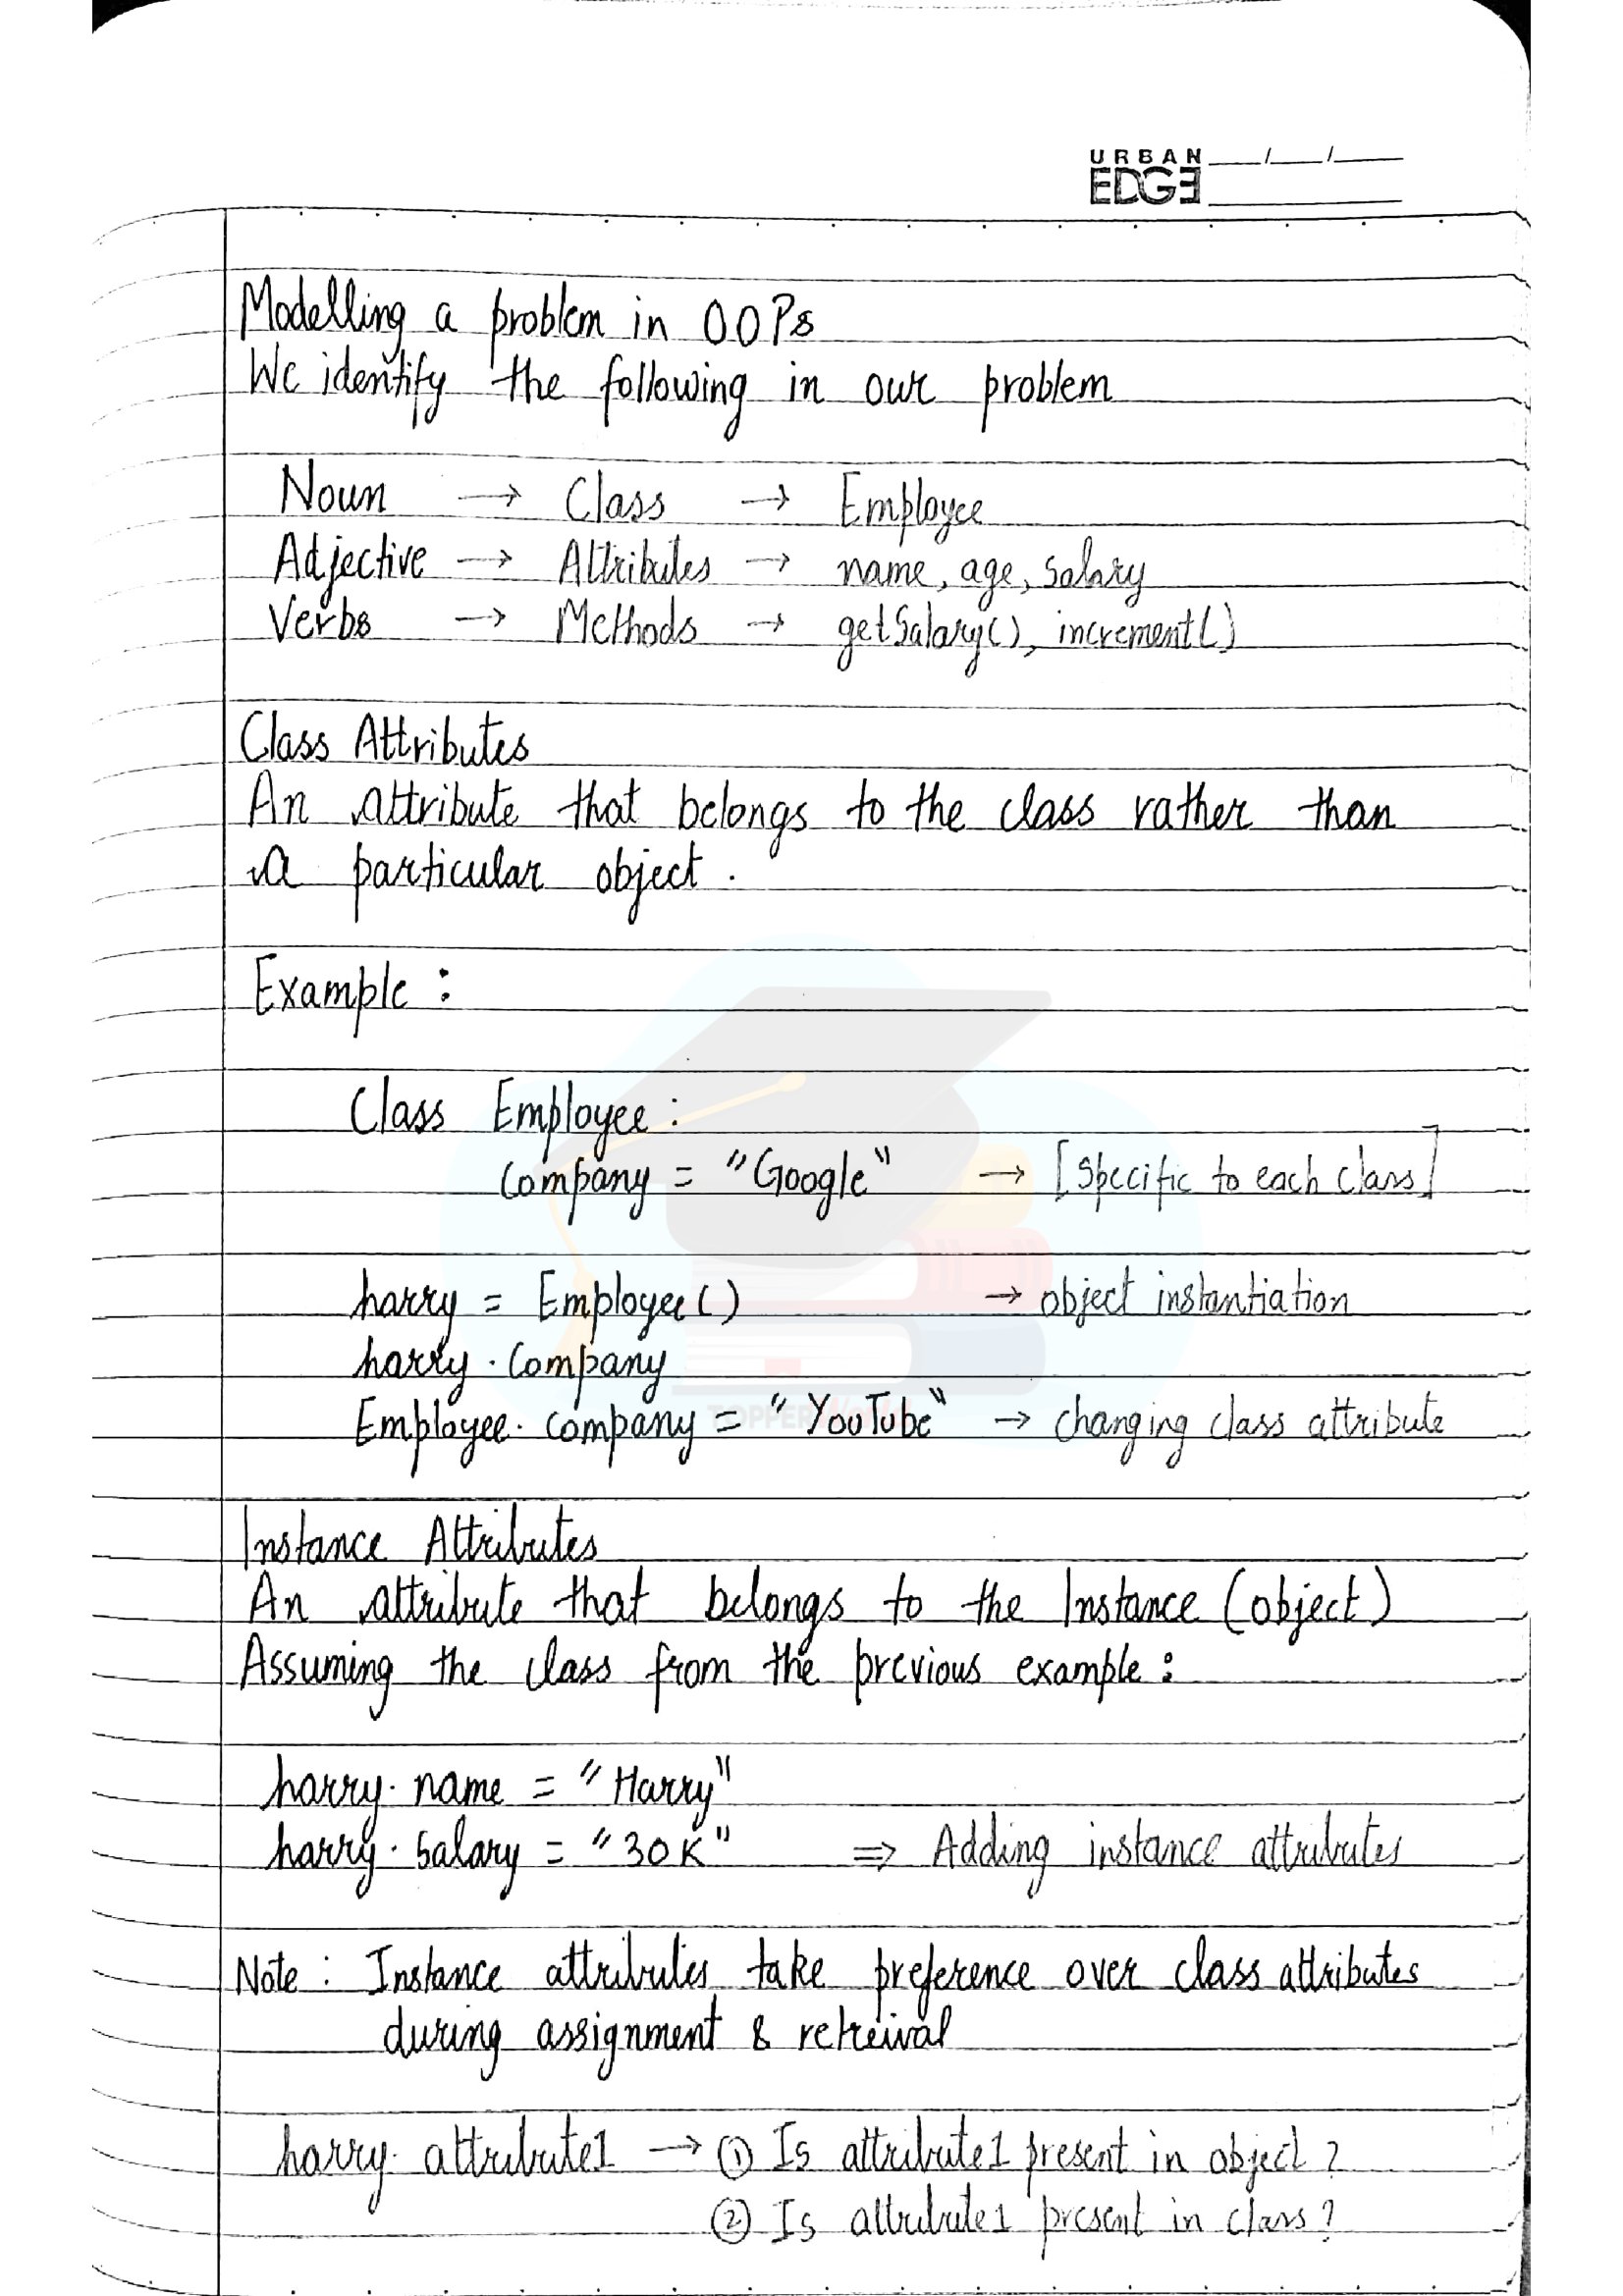 URBAN
EDGE
Modelling a problem in OOPs
We identify the following in our problem
Noun → Class → Employee
Adjective → Attributes → name, age, salary
Verbs → Methods → getSalary(), increment()
Class Attributes
An attribute that belongs to the class rather than
a particular object.
Example :
Class Employee :
Company = "Google" → [Specific to each class]
harry = Employee() → object instantiation
harry.Company
Employee.company = "YouTube" → changing class attribute
TOPPERWorld
Instance Attributes
An attribute that belongs to the Instance (object)
Assuming the class from the previous example :
harry.name = "Harry"
harry.Salary = "30K" ⇒ Adding instance attributes
Note : Instance attributes take preference over class attributes
during assignment & retreival
harry.attribute1 → ① Is attribute1 present in object ?
② Is attribute1 present in class ?